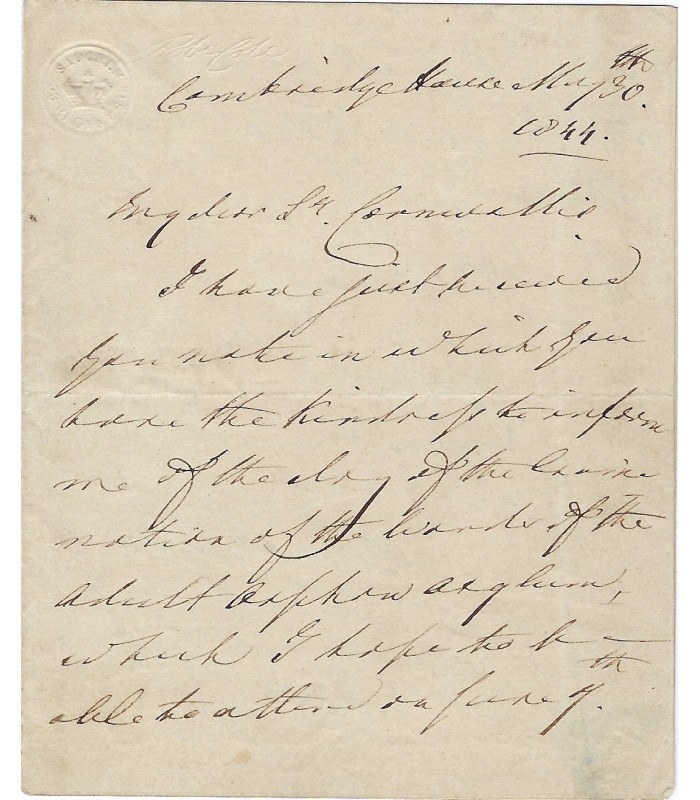 Cambridge House May 30th
1844.
My dear Ly. Cornwallis
I have just received
you note in which you
have the kindness to inform
me of the day of the Exami
nation of the Wards of the
Adult Orphan Asylum,
which I hope to be
able to attend on June 7th.